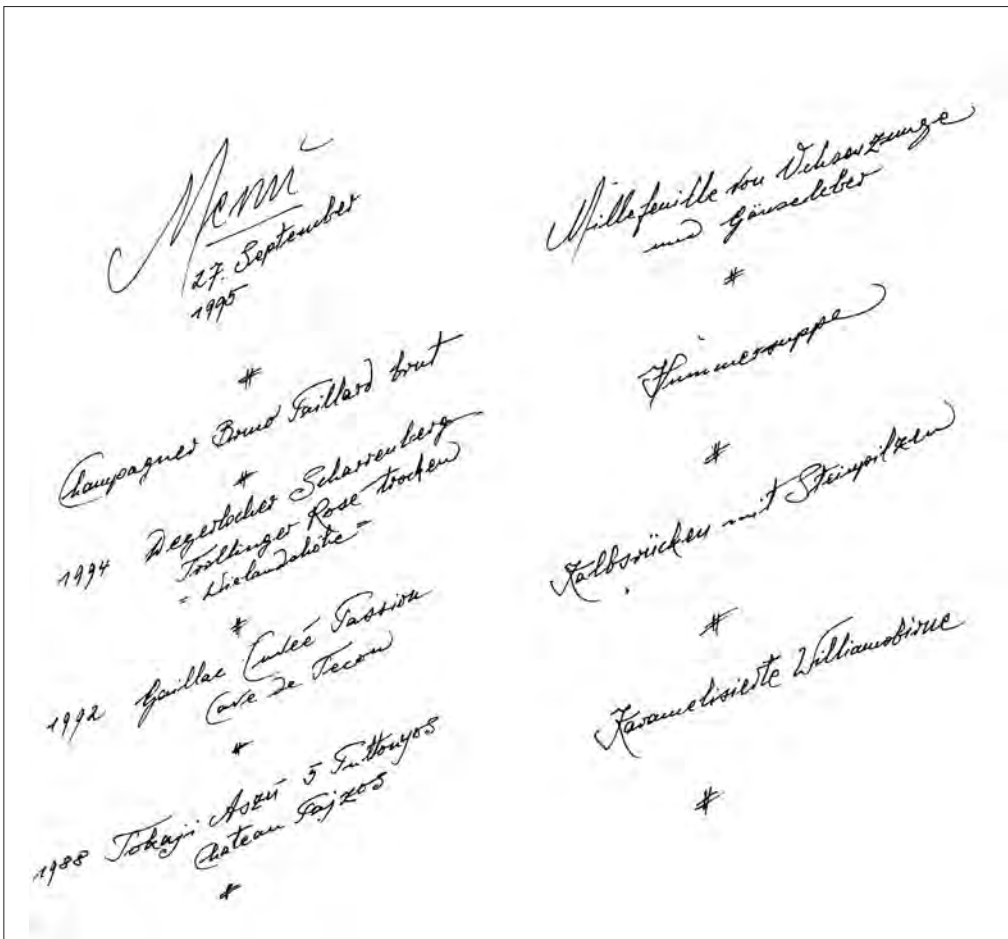 Menü
27. September
1995
#
Champagner Bruno Paillard brut
#
1994 Degerlocher Scharrenberg
Trollinger Rosé trocken
= Wielandshöhe =
#
1992 Gaillac Cuvée Passion
Cave de Tecou
#
1988 Tokaji Aszú 5 Puttonyos
Chateau Pajzos
#
Millefeuille von Ochsenzunge
und Gänseleber
#
Hummersuppe
#
Kalbsrücken mit Steinpilzen
#
Karamelisierte Williamsbirne
#